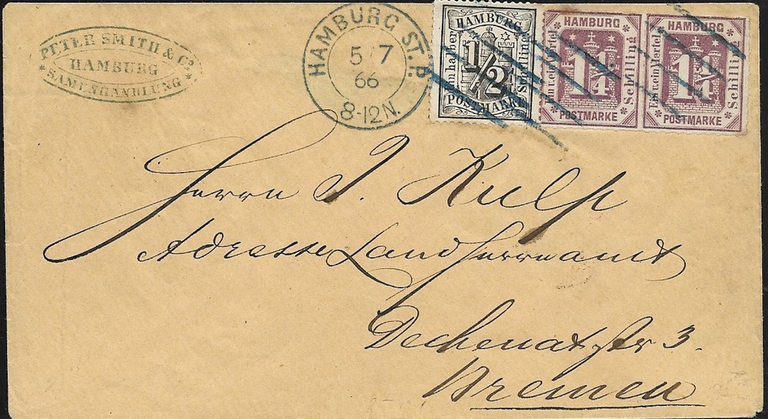 PETER SMITH & Co
HAMBURG
SAMENHANDLUNG
HAMBURG ST. P.
5 7
66
8-12 N.
HAMBURG
Ein halber
1/2
Schilling
POSTMARKE
HAMBURG
Ein ein Viertel
1 1/4
Schilling
POSTMARKE
HAMBURG
Ein ein Viertel
1 1/4
Schilling
POSTMARKE
Herrn J. Kulp
Adresse Landherrnamt
Dechenatstr 3.
Bremen